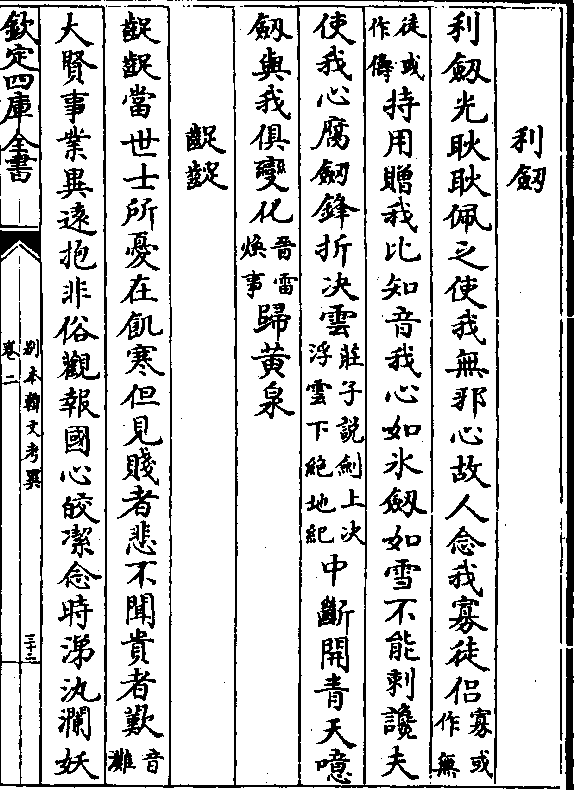 利劔
利劔光耿耿佩之使我無邪心故人念我寡徒侣寡或作無
徒或作儔持用贈我比知音我心如氷劔如雪不能刺讒夫
使我心腐劔鋒折决雲莊子說劍上决浮雲下絶地紀中斷開青天噫
劔與我俱變化晉雷焕事歸黄泉
齪齪
齪齪當世士所憂在飢寒但見賤者悲不聞貴者歎音灘
大賢事業異遠抱非俗觀報國心皎潔念時涕汍瀾妖
欽定四庫全書
別本韓文考異
卷二
三十二